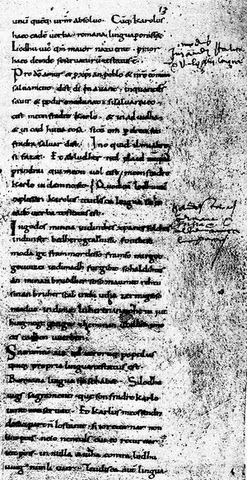 13
unu quęq; urm absoluo. Cuq; karolus
haec eade uerba romana lingua porasset.
Lodhuuic qm maior natu erat. prior
haec deinde se seruaturu testatus e.
Pro dō amur & pxpian poblo & nro comun
saluament. dist di en auant. inquantds
sauir & podir medunat. sisaluaraieo.
cist meon fradre karlo. & in aiudha
& in cad huna cosa. sicu om p dreit son
fradra saluar dist. Ino quid il mialtre
si fazet. Et abludher nul plaid nuqua
prindrai qui meon uol cist meon fradre
karle in damno sit. Quod cu lodhuuic
explesset. karolus teudisca lingua sic hec
eade uerba testatus est.
In godes minna ind inthes xpanes folches
ind unser bedhero gealtnissi. fonthese
moda ge frammordesso framso mirgot
geuuizci indi madh furgibit so haldihtes
an minan bruodher soso man mit rehtu
sinan bruher scal inthi utha zermigsoso
maduo. indimit luheren in nohein iut
hing nege gango. zhe minan uuillon imo
ce scadhen uuerhen.
Sacramentu aute qd utroruq; populus
quiq; propria lingua testatus est.
Romana lingua sic se habet. Silodhu
uigs sagrament. que son fradre karlo
iurat conseruat. Et karlus meos sendra
desuo part n lostanit. si io returnar non
lint pois. neio neneuls cui eo returnar
int pois. in nulla aiudha contra lodhu
uuig nun li iuer. Teudisca aut lingua